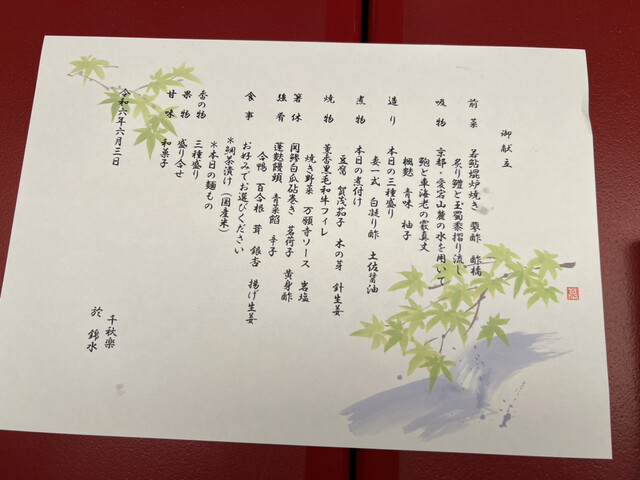 御献立
前菜 若鮎焜炉焼き 蓼酢 酢橘
炙り鱧と玉蜀黍摺り流し
吸物 京都・愛宕山麓の水を用いて
鮑と車海老の霰真丈
楓麩 青味 柚子
造り 本日の三種盛り
妻一式 白凝り酢 土佐醤油
煮物 本日の煮付け
豆腐 賀茂茄子 木の芽 針生姜
焼物 薫香黒毛和牛フィレ
焼き野菜 万願寺ソース 岩塩
箸休 間鯵白瓜砧巻き 茗荷子 黄身酢
強肴 蓬麩饅頭 青菜餡 辛子
合鴨 百合根 茸 銀杏 揚げ生姜
食事 お好みでお選びください
*鯛茶漬け(国産米)
*本日の麺もの
香の物 三種盛り
果物 盛り合せ
甘味 和菓子
令和六年六月三日
千秋楽
於 錦水